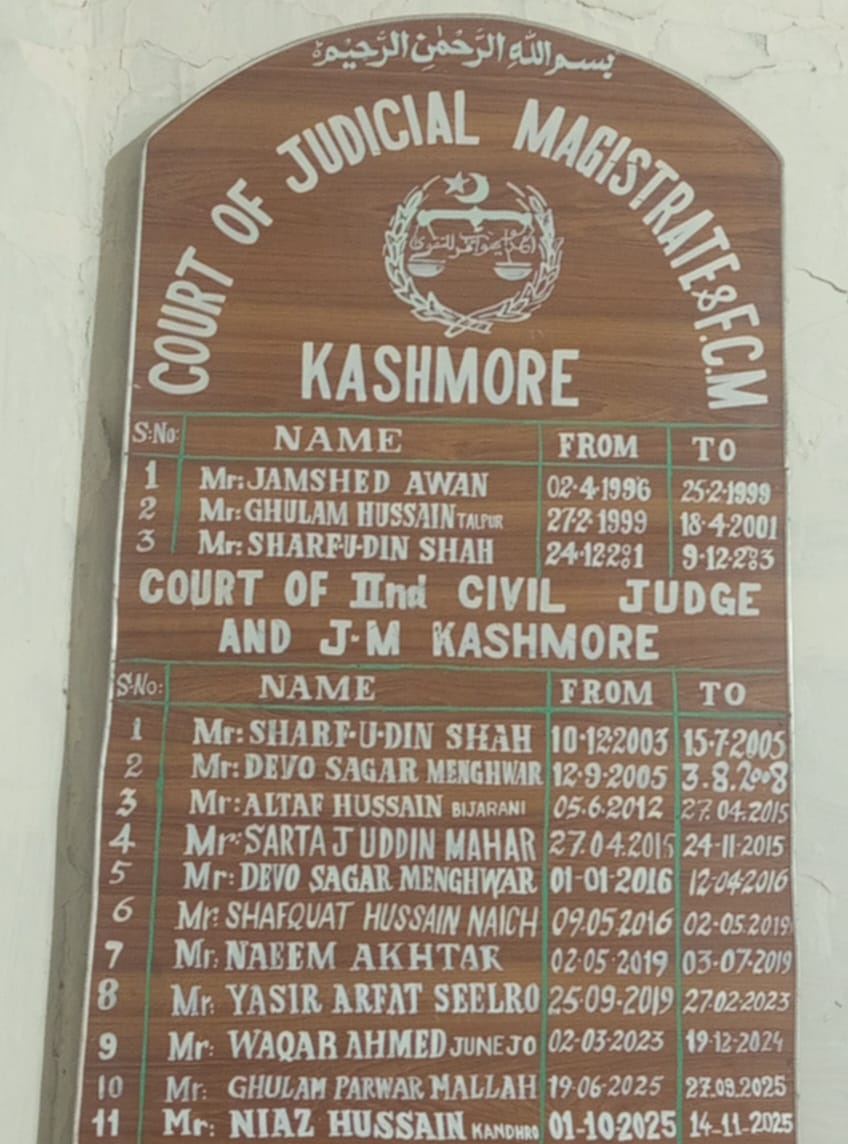 بسم الله الرحمن الرحيم
COURT OF JUDICIAL MAGISTRATE & F.C.M
KASHMORE
S:No: NAME FROM TO
1 Mr: JAMSHED AWAN 02-4-1996 25-2-1999
2 Mr: GHULAM HUSSAIN TALPUR 27-2-1999 18-4-2001
3 Mr: SHARF-U-DIN SHAH 24-12-2001 9-12-2003
COURT OF IInd CIVIL JUDGE
AND J-M KASHMORE
S:No: NAME FROM TO
1 Mr: SHARF-U-DIN SHAH 10-12-2003 15-7-2005
2 Mr: DEVO SAGAR MENGHWAR 12-9-2005 3.8.2008
3 Mr: ALTAF HUSSAIN BIJARANI 05.6.2012 27.04.2015
4 Mr: SARTAJ UDDIN MAHAR 27.04.2015 24-11-2015
5 Mr: DEVO SAGAR MENGHWAR 01-01-2016 12-04-2016
6 Mr: SHAFQUAT HUSSAIN NAICH 09.05.2016 02-05.2019
7 Mr: NAEEM AKHTAR 02-05-2019 03-07-2019
8 Mr: YASIR ARFAT SEELRO 25-09-2019 27-02-2023
9 Mr: WAQAR AHMED JUNEJO 02-03-2023 19-12-2024
10 Mr: GHULAM PARWAR MALLAH 19-06-2025 27.09.2025
11 Mr: NIAZ HUSSAIN KANDHRO 01-10-2025 14-11-2025